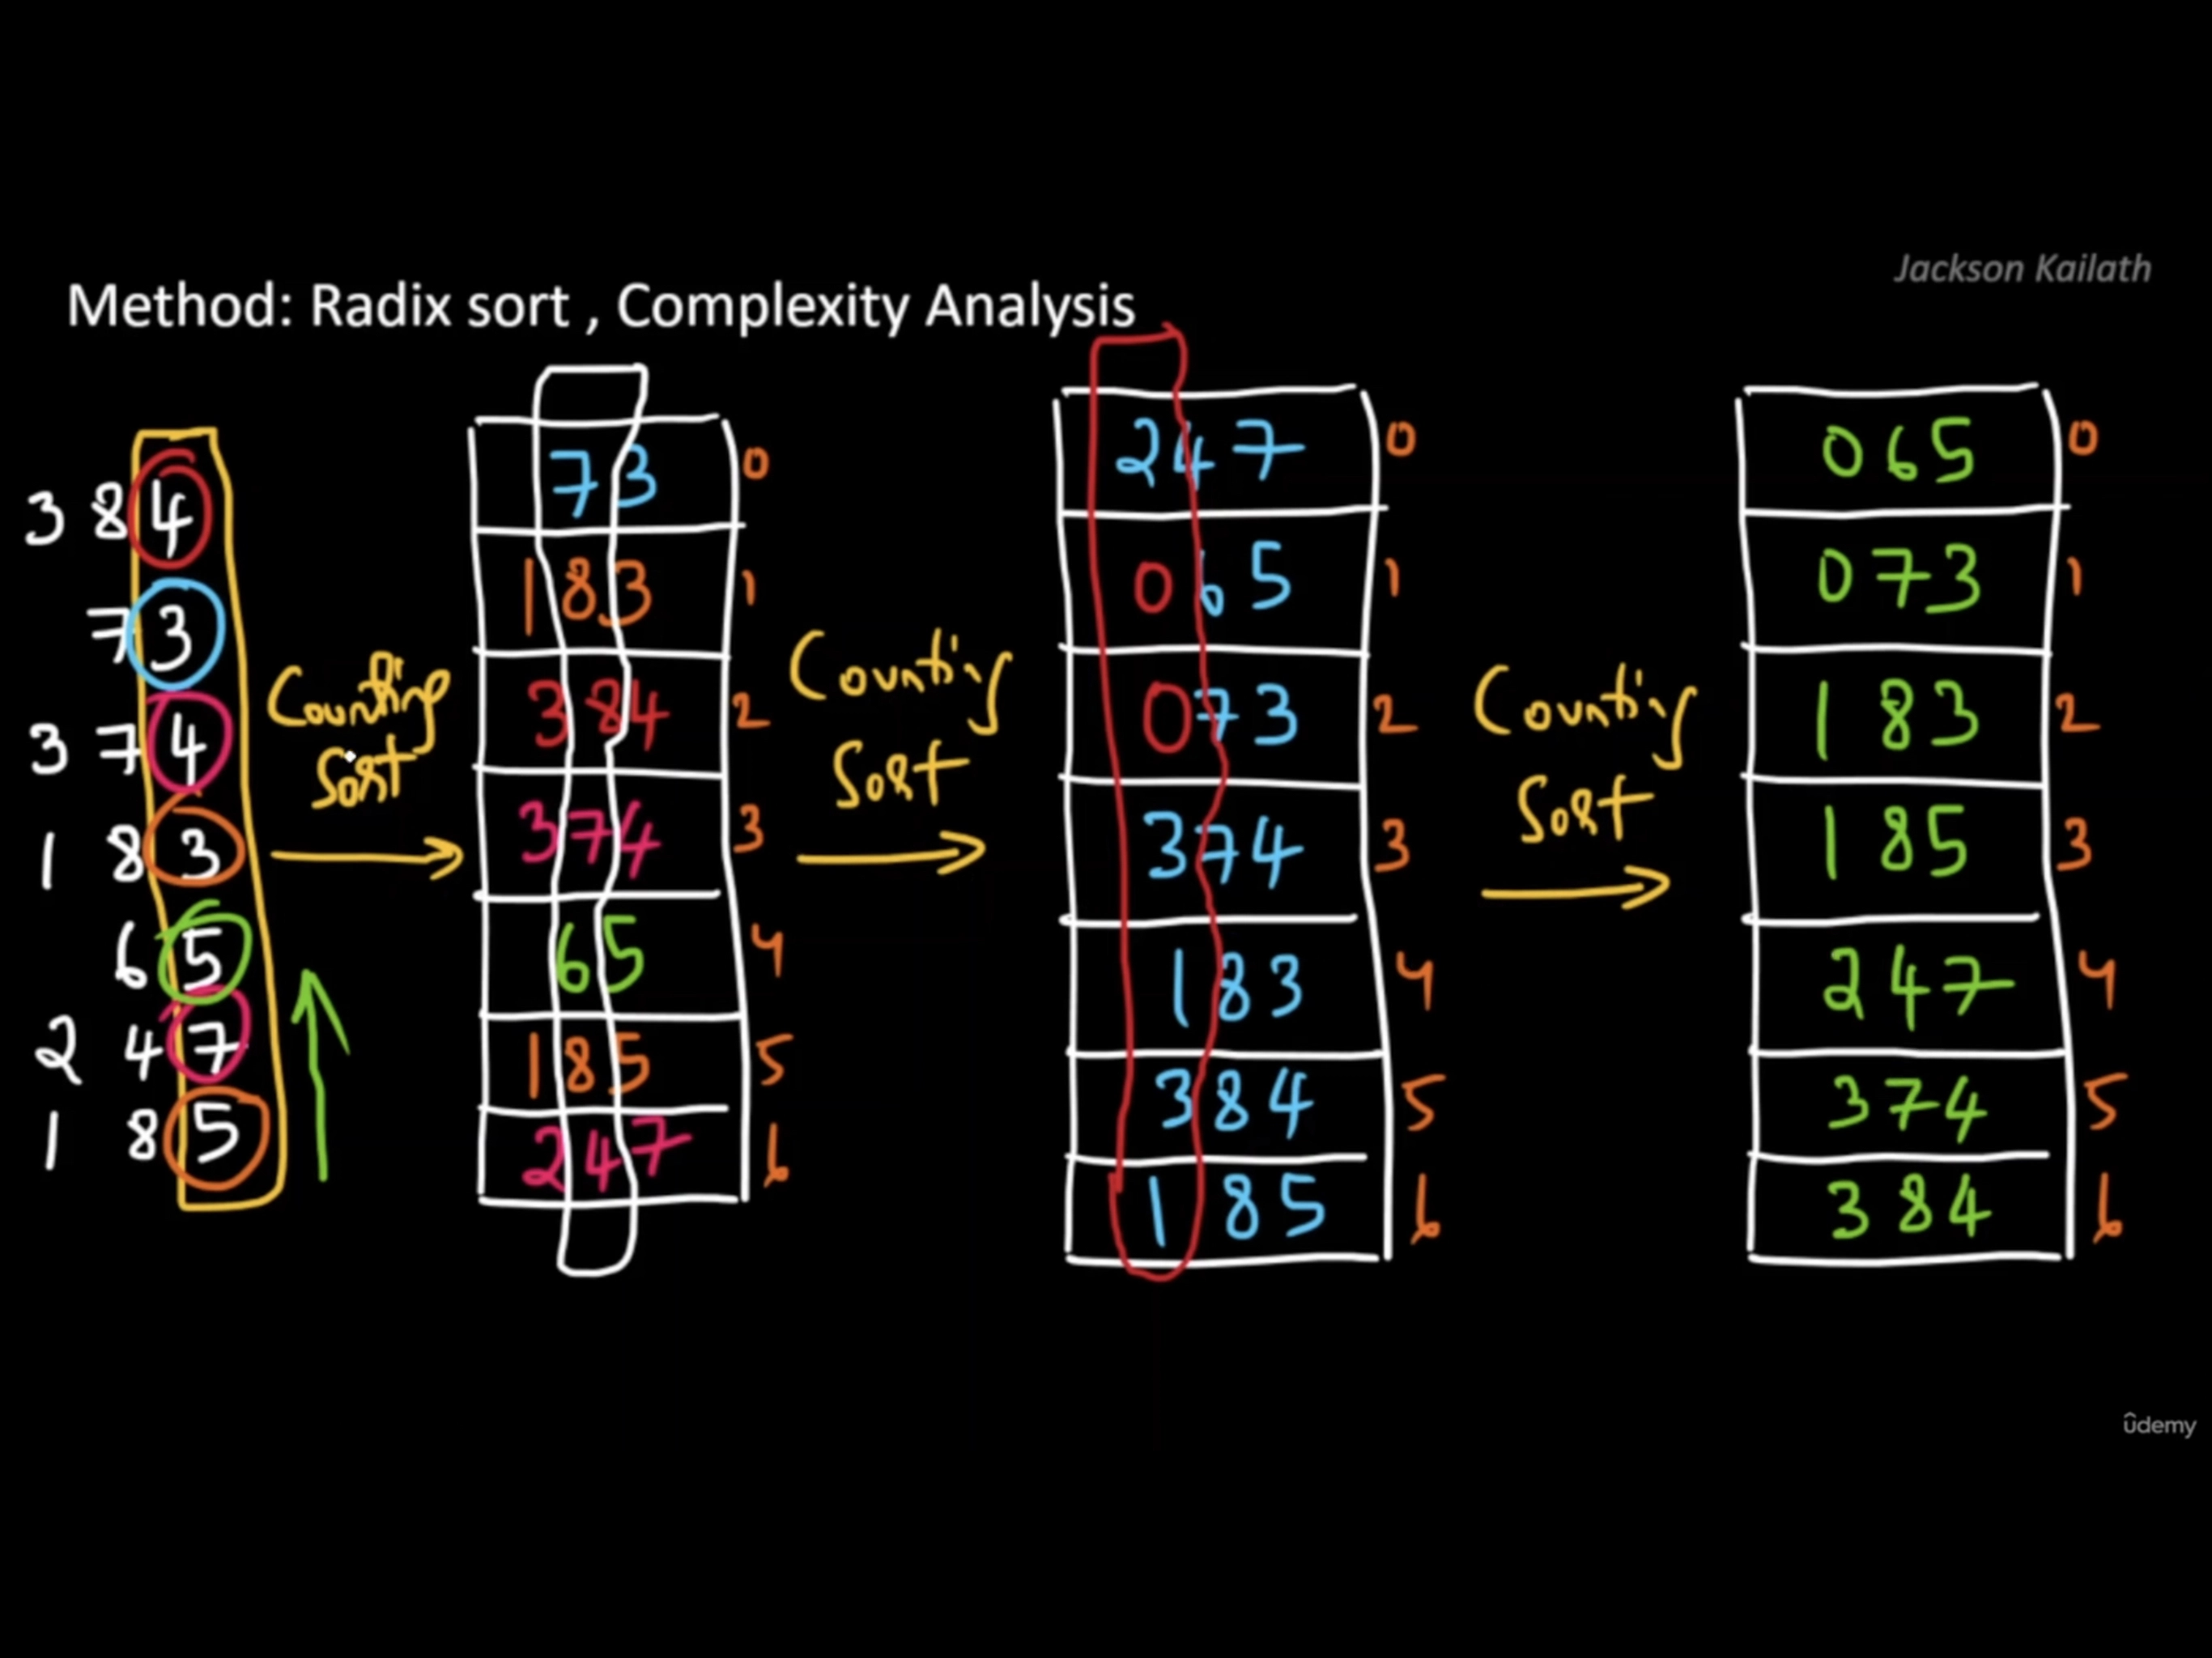 Jackson Kailath
Method: Radix sort , Complexity Analysis
3 8 4
7 3
3 7 4
1 8 3
6 5
2 4 7
1 8 5
Counting
Sort
73 0
183 1
384 2
374 3
65 4
185 5
247 6
Counting
Sort
247 0
065 1
073 2
374 3
183 4
384 5
185 6
Counting
Sort
065 0
073 1
183 2
185 3
247 4
374 5
384 6
ûdemy